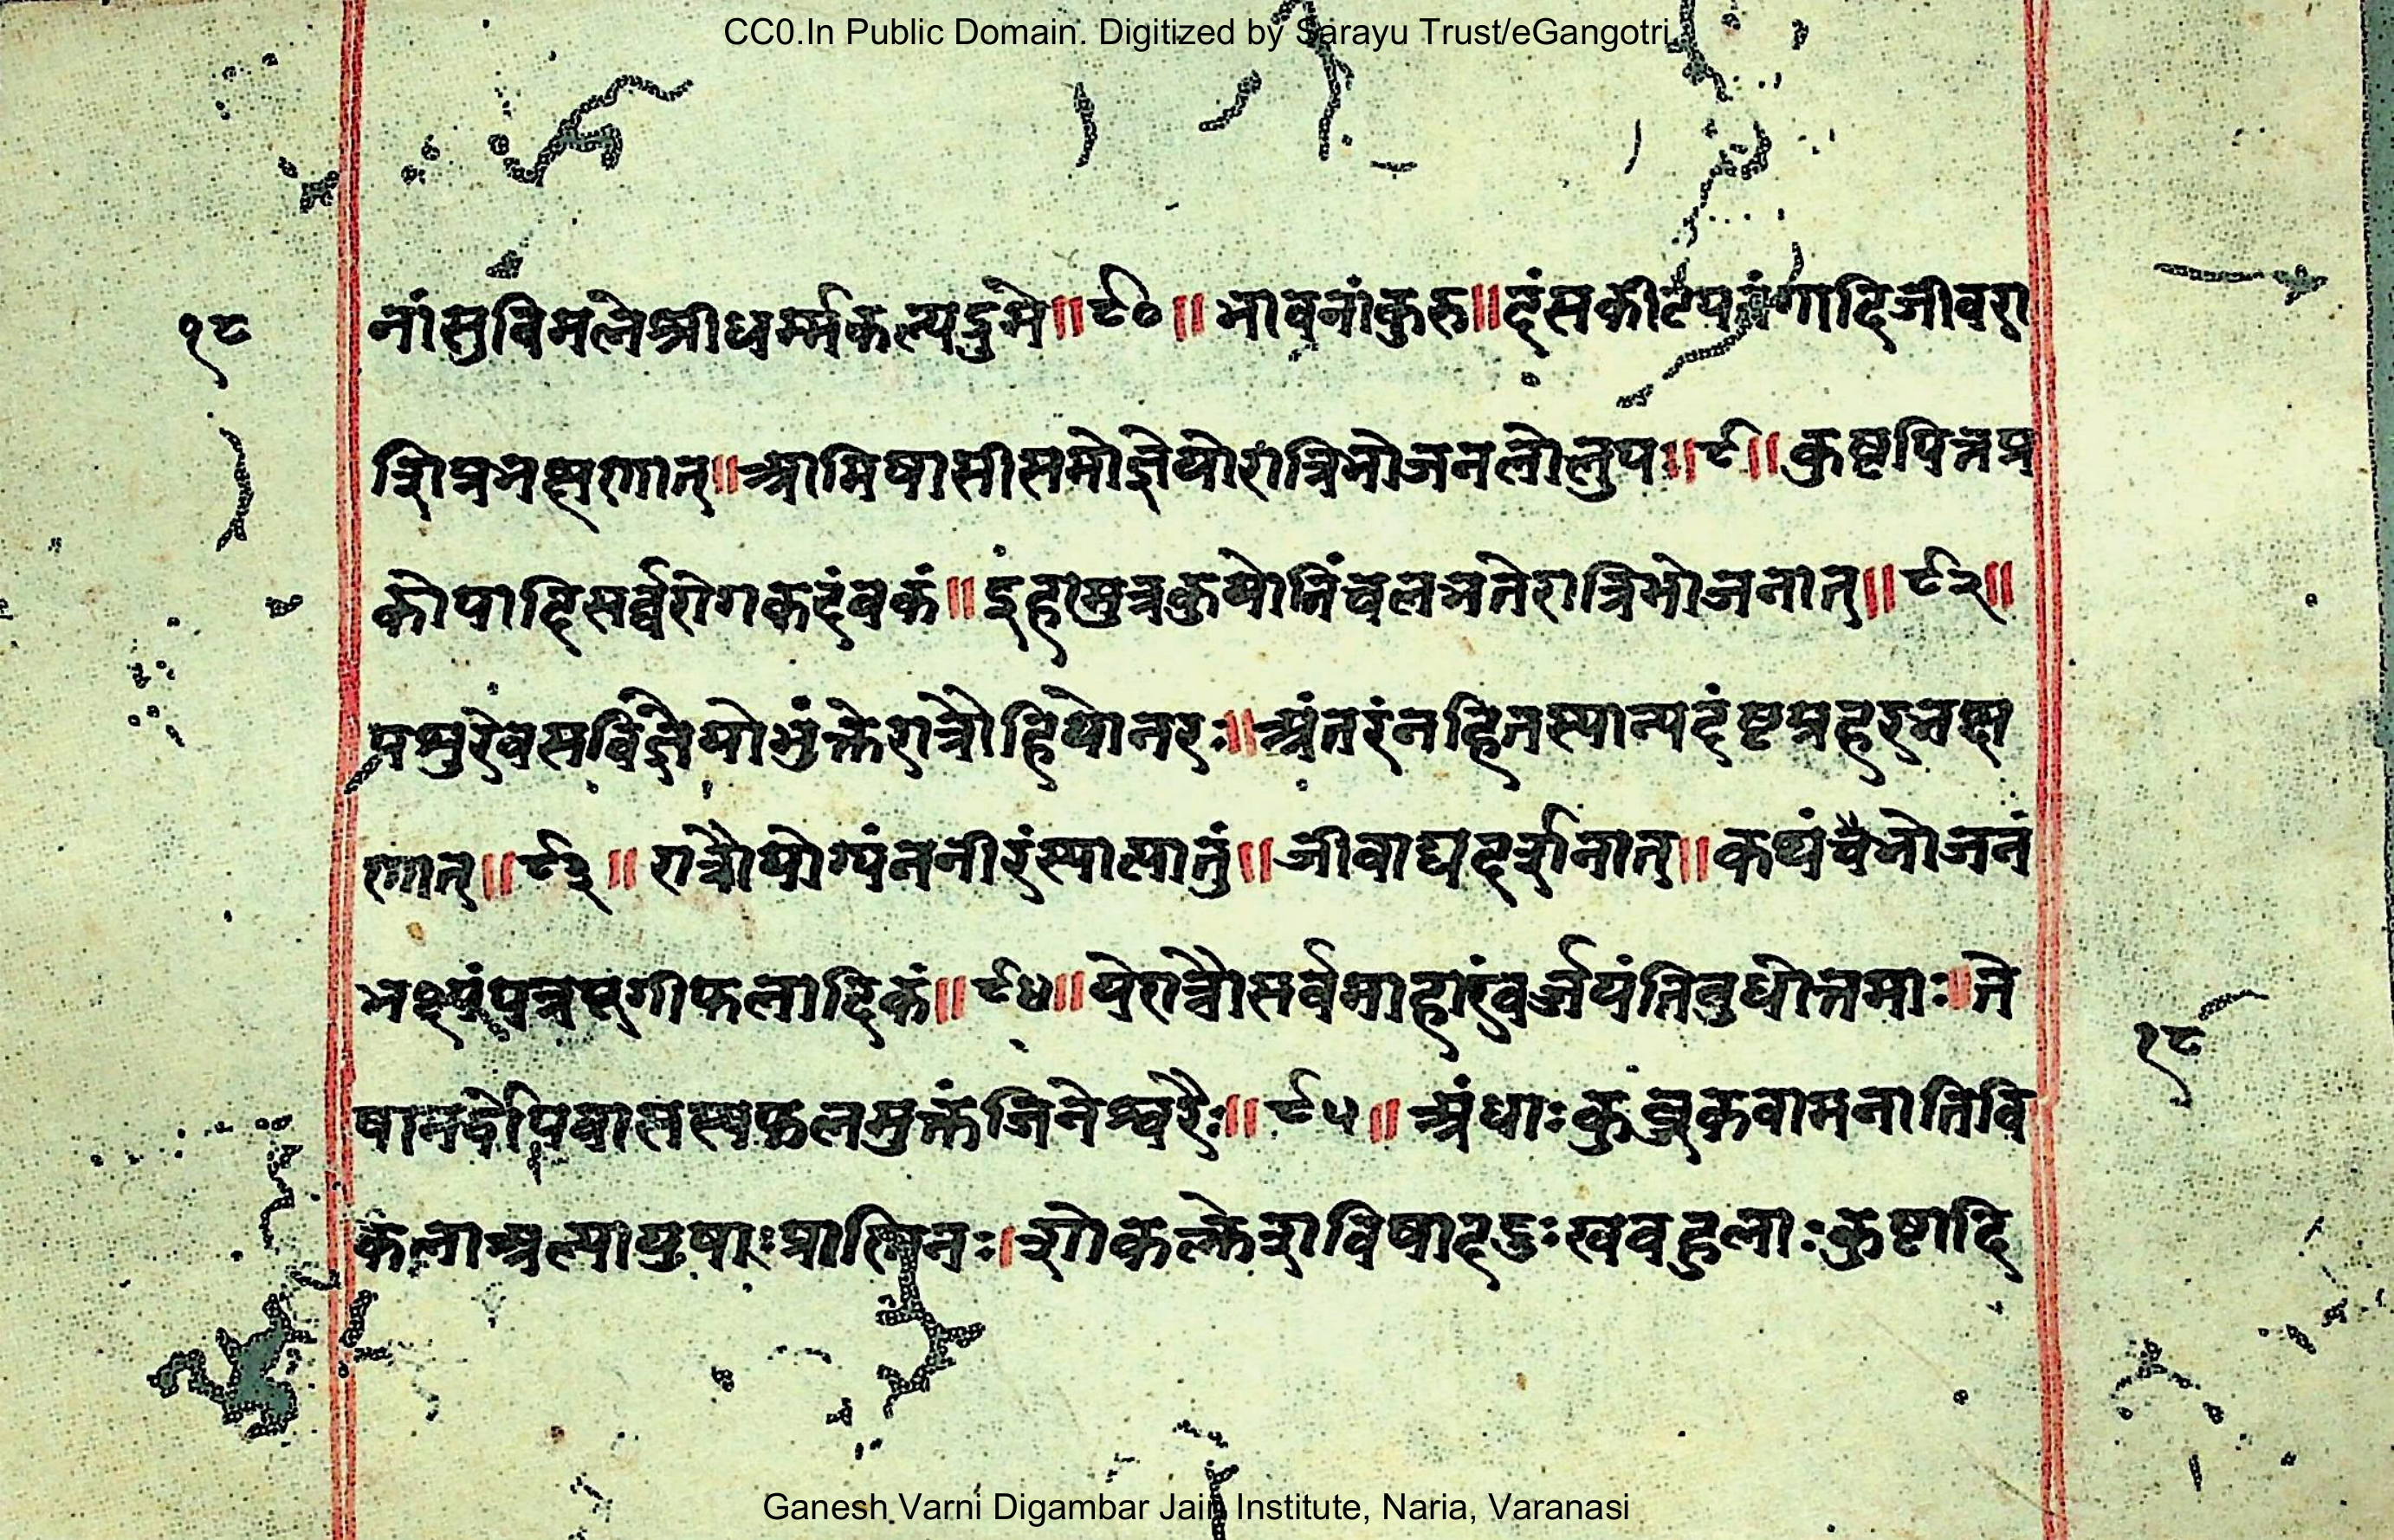 CC0.In Public Domain. Digitized by Sarayu Trust/eGangotri
१८
नांसुविमलेश्रीधर्म्मकल्पद्रुमे॥९०॥भावनांकुरु॥दंसकीटपतंगादिजीवरा
शिप्रभक्षणात्॥आमिषासीसमोज्ञेयोरात्रिभोजनलोलुप॥९॥कुष्टपित्तप्र
कोपादिसर्व्वरोगकदंबकं॥इहामुत्रकुयोनिंचलभतेरात्रिभोजनात्॥९२॥
पशुरेवसविज्ञेयोभुंक्तेरात्रौहियोनरः॥अंतरंनहितस्यान्यदंष्टप्रहरभक्ष
णात्॥९३॥रात्रौयोग्यंननीरंस्यात्पातुं॥जीवाद्यदर्शनात्॥कथंचैभोजनं
भक्ष्यंपत्रपूगीफलादिकं॥९४॥येरात्रौसर्वमाहारंवर्ज्जयंतिबुधोत्तमाः॥ते
षानर्द्धोपवासस्यफलमुक्तंजिनेश्वरैः॥९५॥अंधाःकुब्जकवामनातिवि
कलाअल्पायुषाःप्राणिनः।शोकक्लेशविषाददुःखबहुलाःकुष्टादि
१८
Ganesh Varni Digambar Jain Institute, Naria, Varanasi